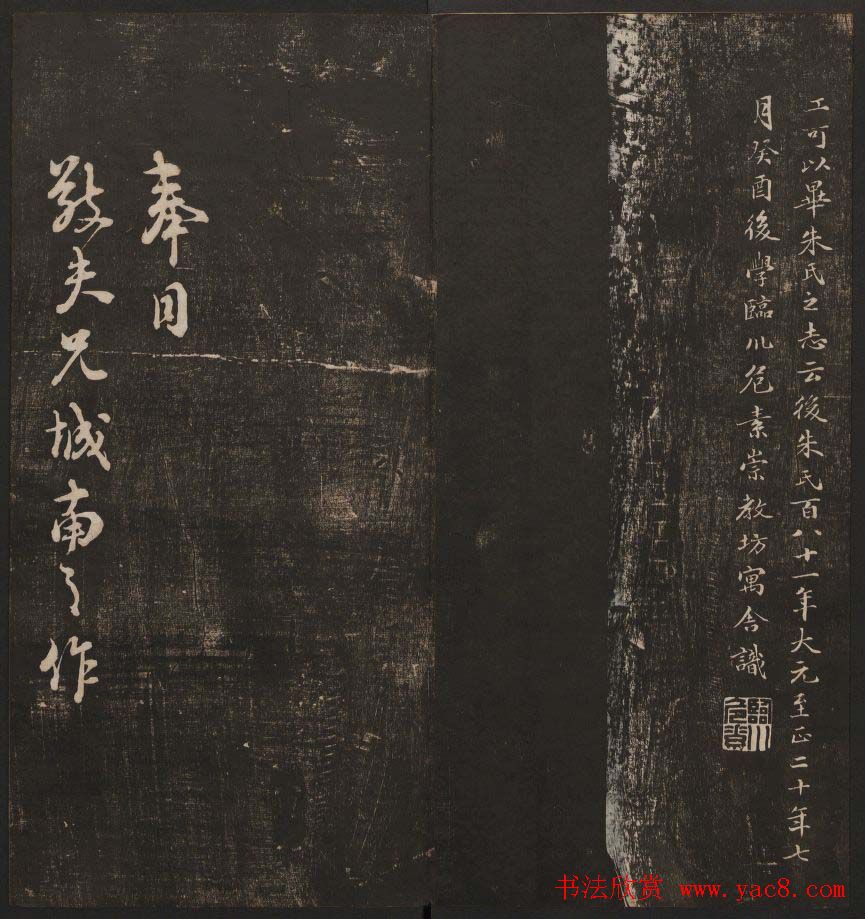 工可以畢朱氏之志云後朱氏百八十一年大元至正二十年七
月癸酉後學臨川危素崇教坊寓舍識
奉同
敬夫兄城南之作
书法欣赏 www.yac8.com